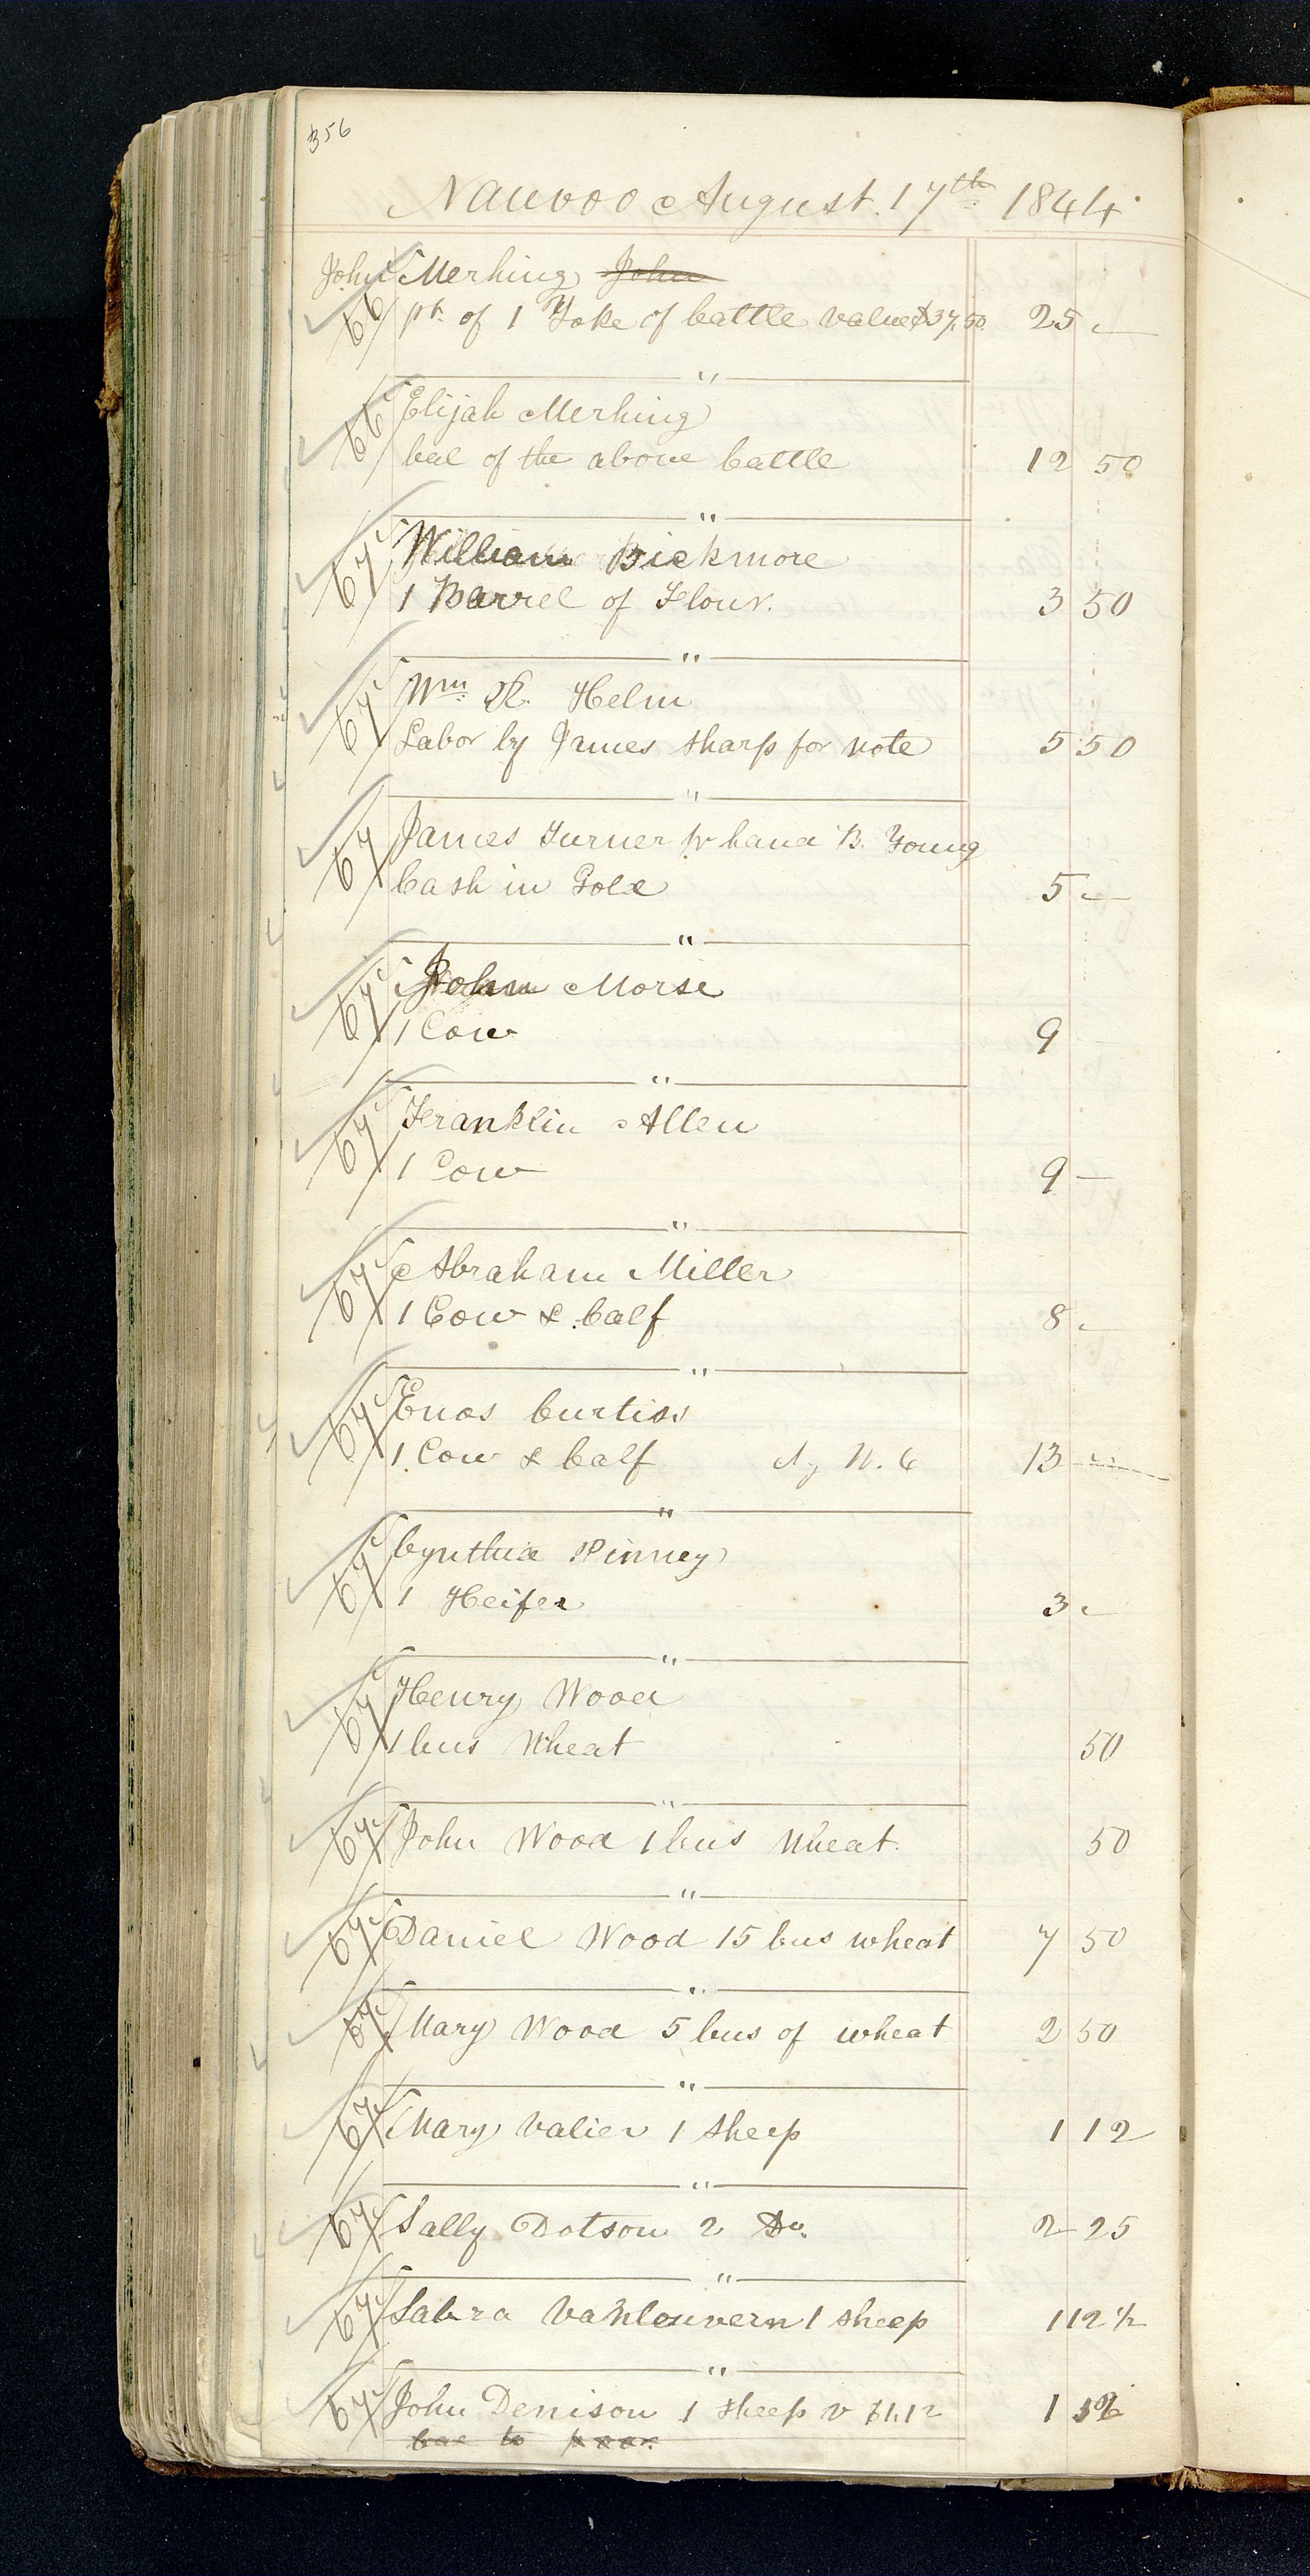 356
Nauvoo August. 17th 1844.
John Merhing John
66 pt. of 1 Yoke of Cattle value $37,50. 25 —
"
66 Elijah Merhing
bal of the above Cattle 12 50
"
67 William Bickmore
1 Barrel of Flour. 3 50
"
67 Wm R. Helm
Labor by James Sharp for note 5 50
"
67 James Turner pr hand B. Young
Cash in Gold 5 —
"
67 John Morse
1 Cow 9
"
67 Franklin Allen
1 Cow 9 —
"
67 Abraham Miller
1 Cow & Calf 8 —
"
67 Enos Curtiss
1 Cow & Calf 13 —
"
67 Cynthia Pinney
1 Heifer 3 —
"
67 Henry Wood
1 bus Wheat 50
"
67 John Wood 1 bus Wheat. 50
"
67 Daniel Wood 15 bus wheat 7 50
"
67 Mary Wood 5 bus of wheat 2 50
"
67 Mary Valier 1 sheep 1 12
"
67 Sally Dotson 2 Do. 2 25
"
67 Sabra Vanlouvern 1 sheep 1 12 1/2
"
67 John Denison 1 sheep v $1.12 1 12
bal to poor